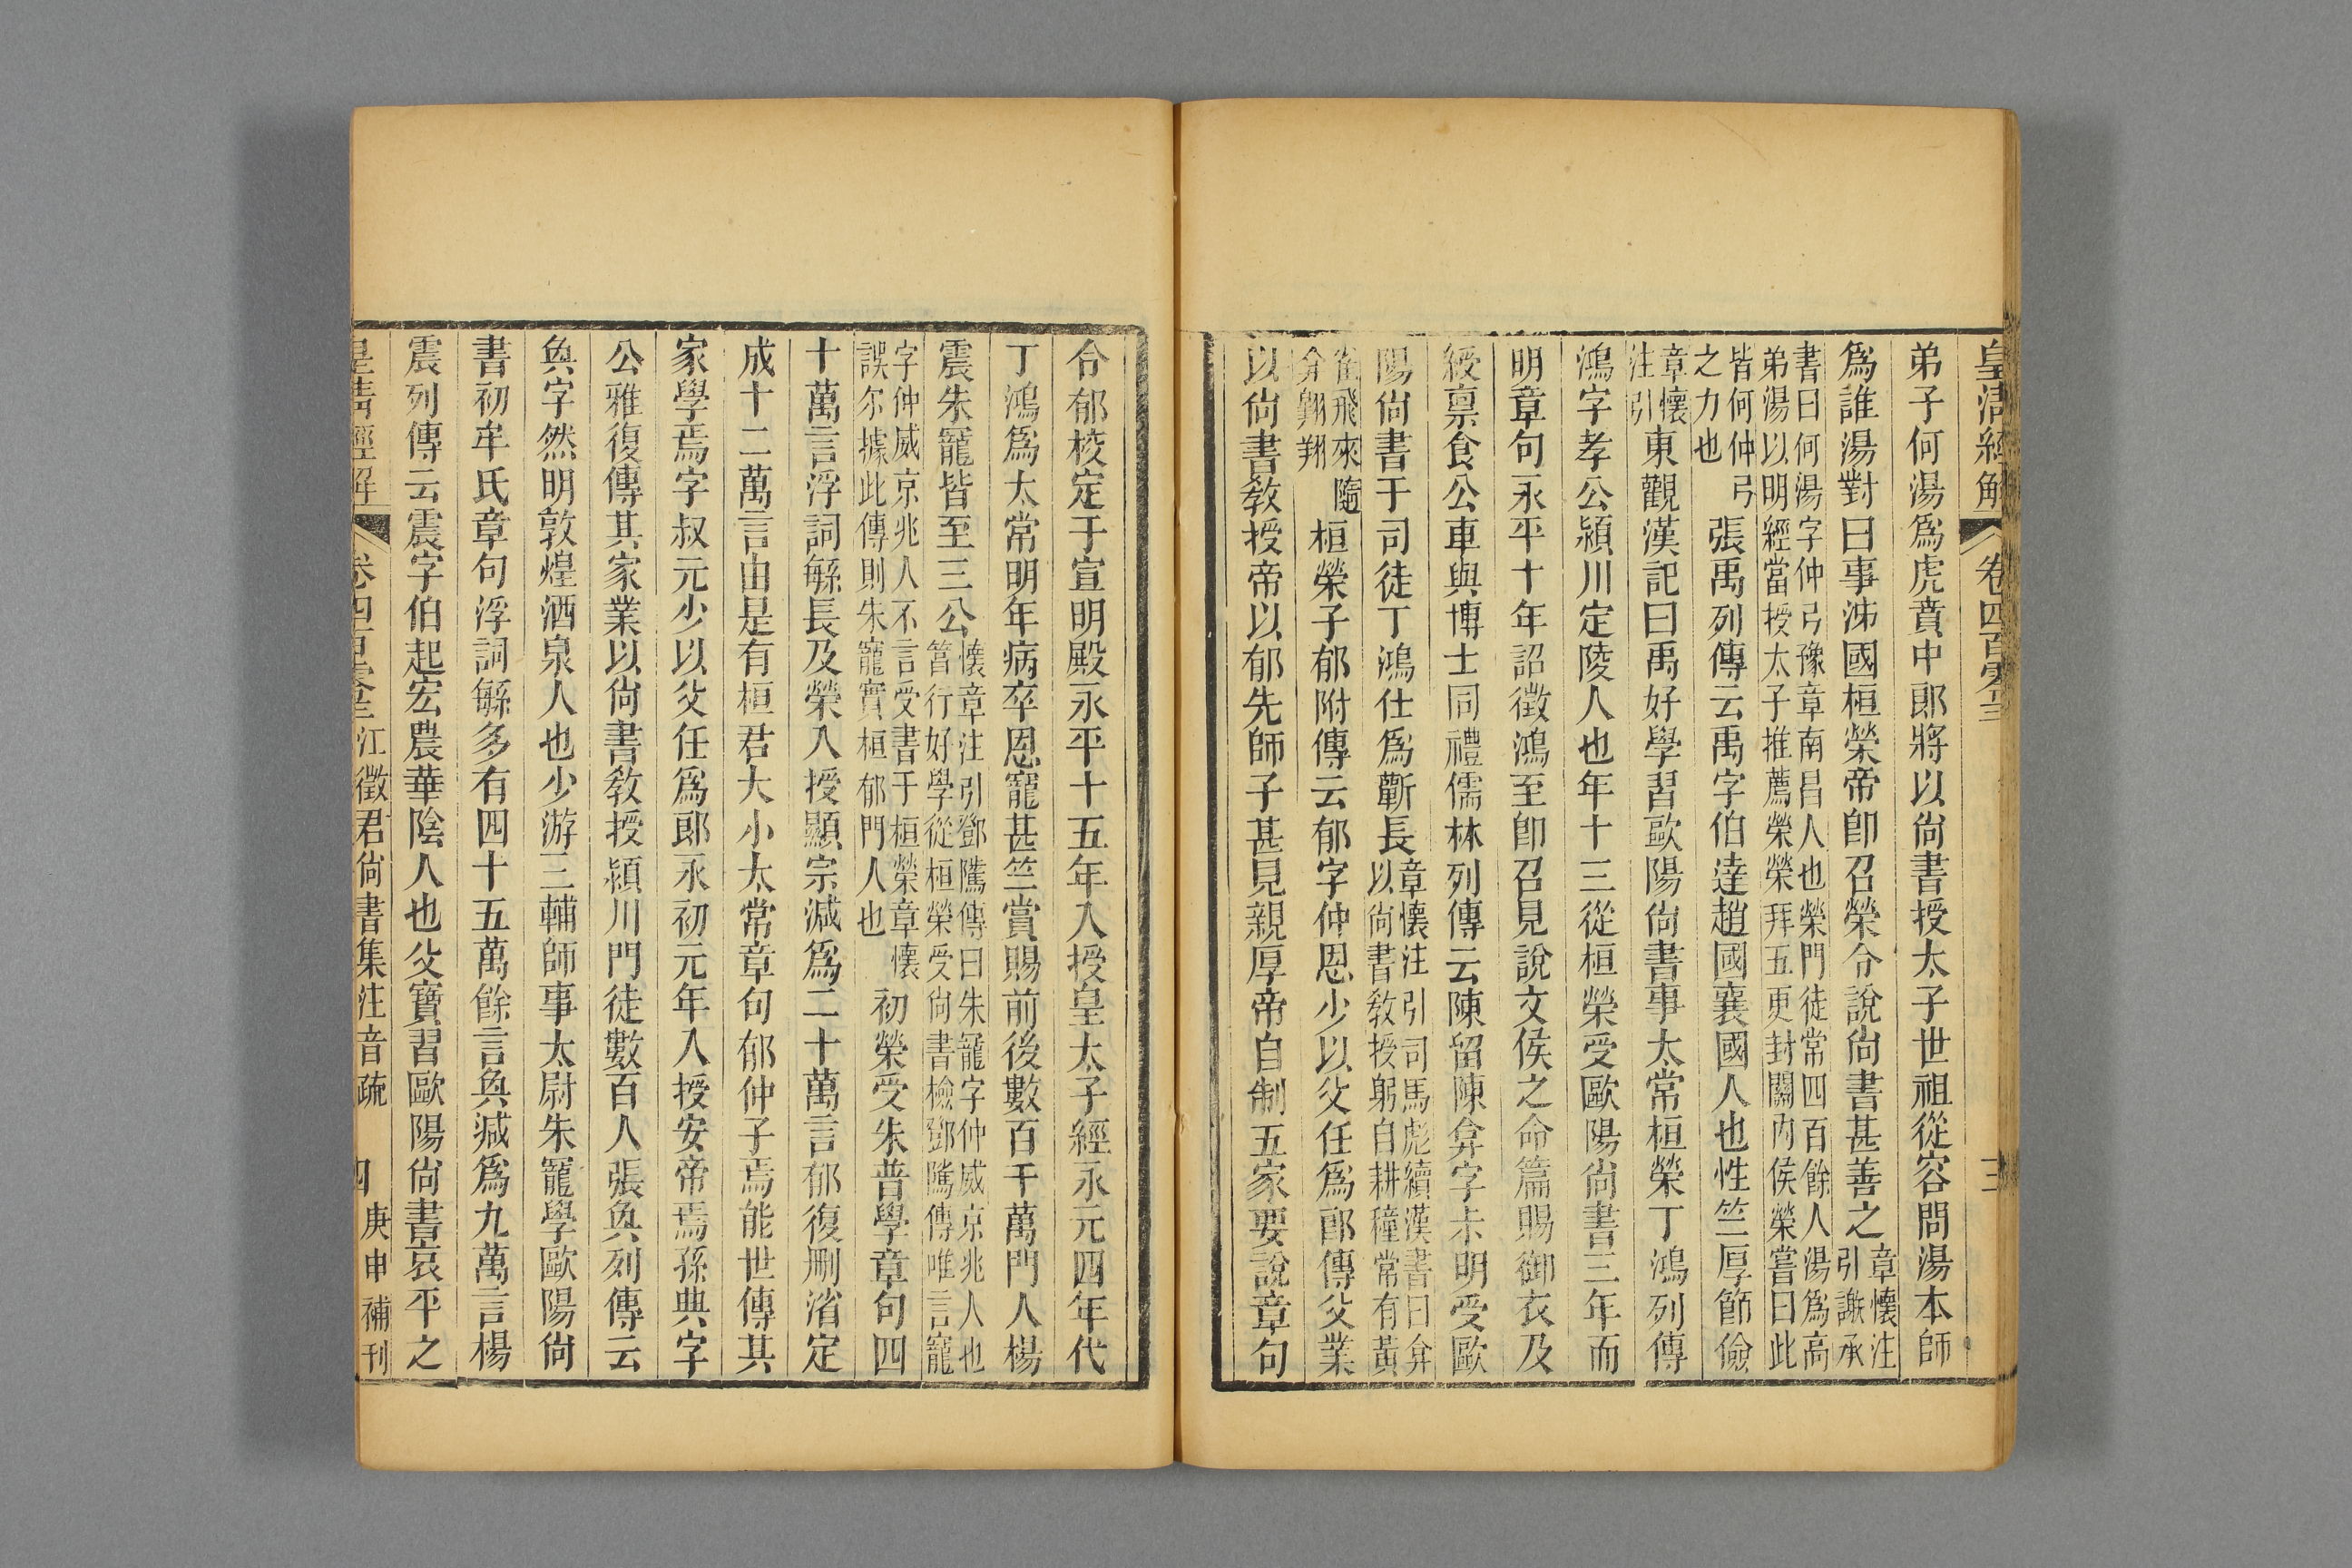 皇清經解 卷四百零三 三
弟子何湯爲虎賁中郎將以尙書授太子世祖從容問湯本師
爲誰湯對曰事沛國桓榮帝卽召榮令說尙書甚善之章懷注
引謝承
書曰何湯字仲弓豫章南昌人也榮門徒常四百餘人湯爲高
弟湯以明經當授太子推薦榮榮拜五更封關內侯榮嘗曰此
皆何仲弓
之力也張禹列傳云禹字伯達趙國襄國人也性竺厚節儉
章懷
注引東觀漢記曰禹好學習歐陽尙書事太常桓榮丁鴻列傳
鴻字孝公潁川定陵人也年十三從桓榮受歐陽尙書三年而
明章句永平十年詔徵鴻至卽召見說文侯之命篇賜御衣及
綬稟食公車與博士同禮儒林列傳云陳留陳弇字未明受歐
陽尙書于司徒丁鴻仕爲蘄長章懷注引司馬彪續漢書曰弇
以尙書敎授躬自耕穜常有黃
雀飛來隨
弇翱翔桓榮子郁附傳云郁字仲恩少以父任爲郎傳父業
以尙書敎授帝以郁先師子甚見親厚帝自制五家要說章句
令郁校定于宣明殿永平十五年入授皇太子經永元四年代
丁鴻爲太常明年病卒恩寵甚竺賞賜前後數百千萬門人楊
震朱寵皆至三公懷章注引鄧騭傳曰朱寵字仲威京兆人也
篤行好學從桓榮受尙書檢鄧騭傳唯言寵
字仲威京兆人不言受書于桓榮章懷
誤尔據此傳則朱寵實桓郁門人也初榮受朱普學章句四
十萬言浮詞緐長及榮入授顯宗減爲二十萬言郁復刪消定
成十二萬言由是有桓君大小太常章句郁仲子焉能世傳其
家學焉字叔元少以父任爲郎永初元年入授安帝焉孫典字
公雅復傳其家業以尙書敎授潁川門徒數百人張奐列傳云
奐字然明敦煌酒泉人也少游三輔師事太尉朱寵學歐陽尙
書初牟氏章句浮詞緐多有四十五萬餘言奐減爲九萬言楊
震列傳云震字伯起宏農華陰人也父寶習歐陽尙書哀平之
皇清經解 卷四百零三 江徵君尙書集注音疏 四 庚申補刊